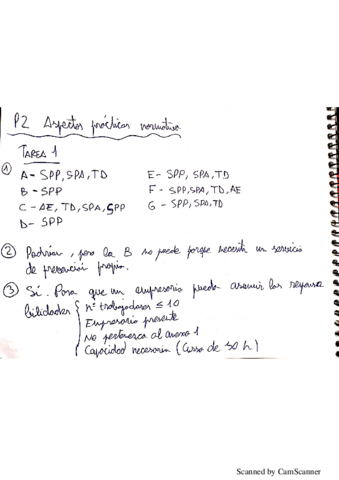 P2 Aspectos prácticos normativa
TAREA 1
① A- SPP, SPA, TD
B- SPP
C- AE, TD, SPA, SPP
D- SPP
E- SPP, SPA, TD
F- SPP, SPA, TD, AE
G- SPP, SPA, TD
② Podrían, pero la B no puede porque necesita un servicio
de prevención propio.
③ Sí. Para que un empresario pueda asumir las responsa
bilidades
nº trabajadores ≤ 10
Empresario presente
No pertenezca al anexo 1
Capacidad necesaria (Curso de 50 h)
Scanned by CamScanner